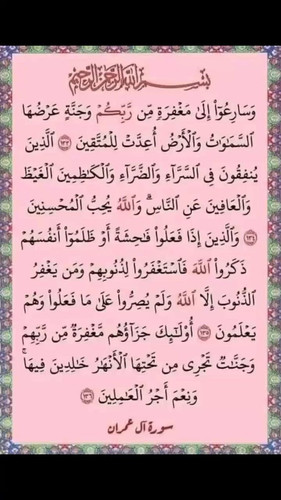 بِسْمِ اللَّهِ الرَّحْمَٰنِ الرَّحِيمِ
وَسَارِعُوٓا۟ إِلَىٰ مَغْفِرَةٍ مِّن رَّبِّكُمْ وَجَنَّةٍ عَرْضُهَا
السَّمَٰوَٰتُ وَالْأَرْضُ أُعِدَّتْ لِلْمُتَّقِينَ ١٣٣ الَّذِينَ
يُنفِقُونَ فِي السَّرَّآءِ وَالضَّرَّآءِ وَالْكَٰظِمِينَ الْغَيْظَ
وَالْعَافِينَ عَنِ النَّاسِ ۗ وَاللَّهُ يُحِبُّ الْمُحْسِنِينَ
١٣٤ وَالَّذِينَ إِذَا فَعَلُوا۟ فَٰحِشَةً أَوْ ظَلَمُوٓا۟ أَنفُسَهُمْ
ذَكَرُوا۟ اللَّهَ فَاسْتَغْفَرُوا۟ لِذُنُوبِهِمْ وَمَن يَغْفِرُ
الذُّنُوبَ إِلَّا اللَّهُ وَلَمْ يُصِرُّوا۟ عَلَىٰ مَا فَعَلُوا۟ وَهُمْ
يَعْلَمُونَ ١٣٥ أُو۟لَٰٓئِكَ جَزَآؤُهُم مَّغْفِرَةٌ مِّن رَّبِّهِمْ
وَجَنَّٰتٌ تَجْرِي مِن تَحْتِهَا الْأَنْهَٰرُ خَٰلِدِينَ فِيهَا ۚ
وَنِعْمَ أَجْرُ الْعَٰمِلِينَ ١٣٦
سورة آل عمران